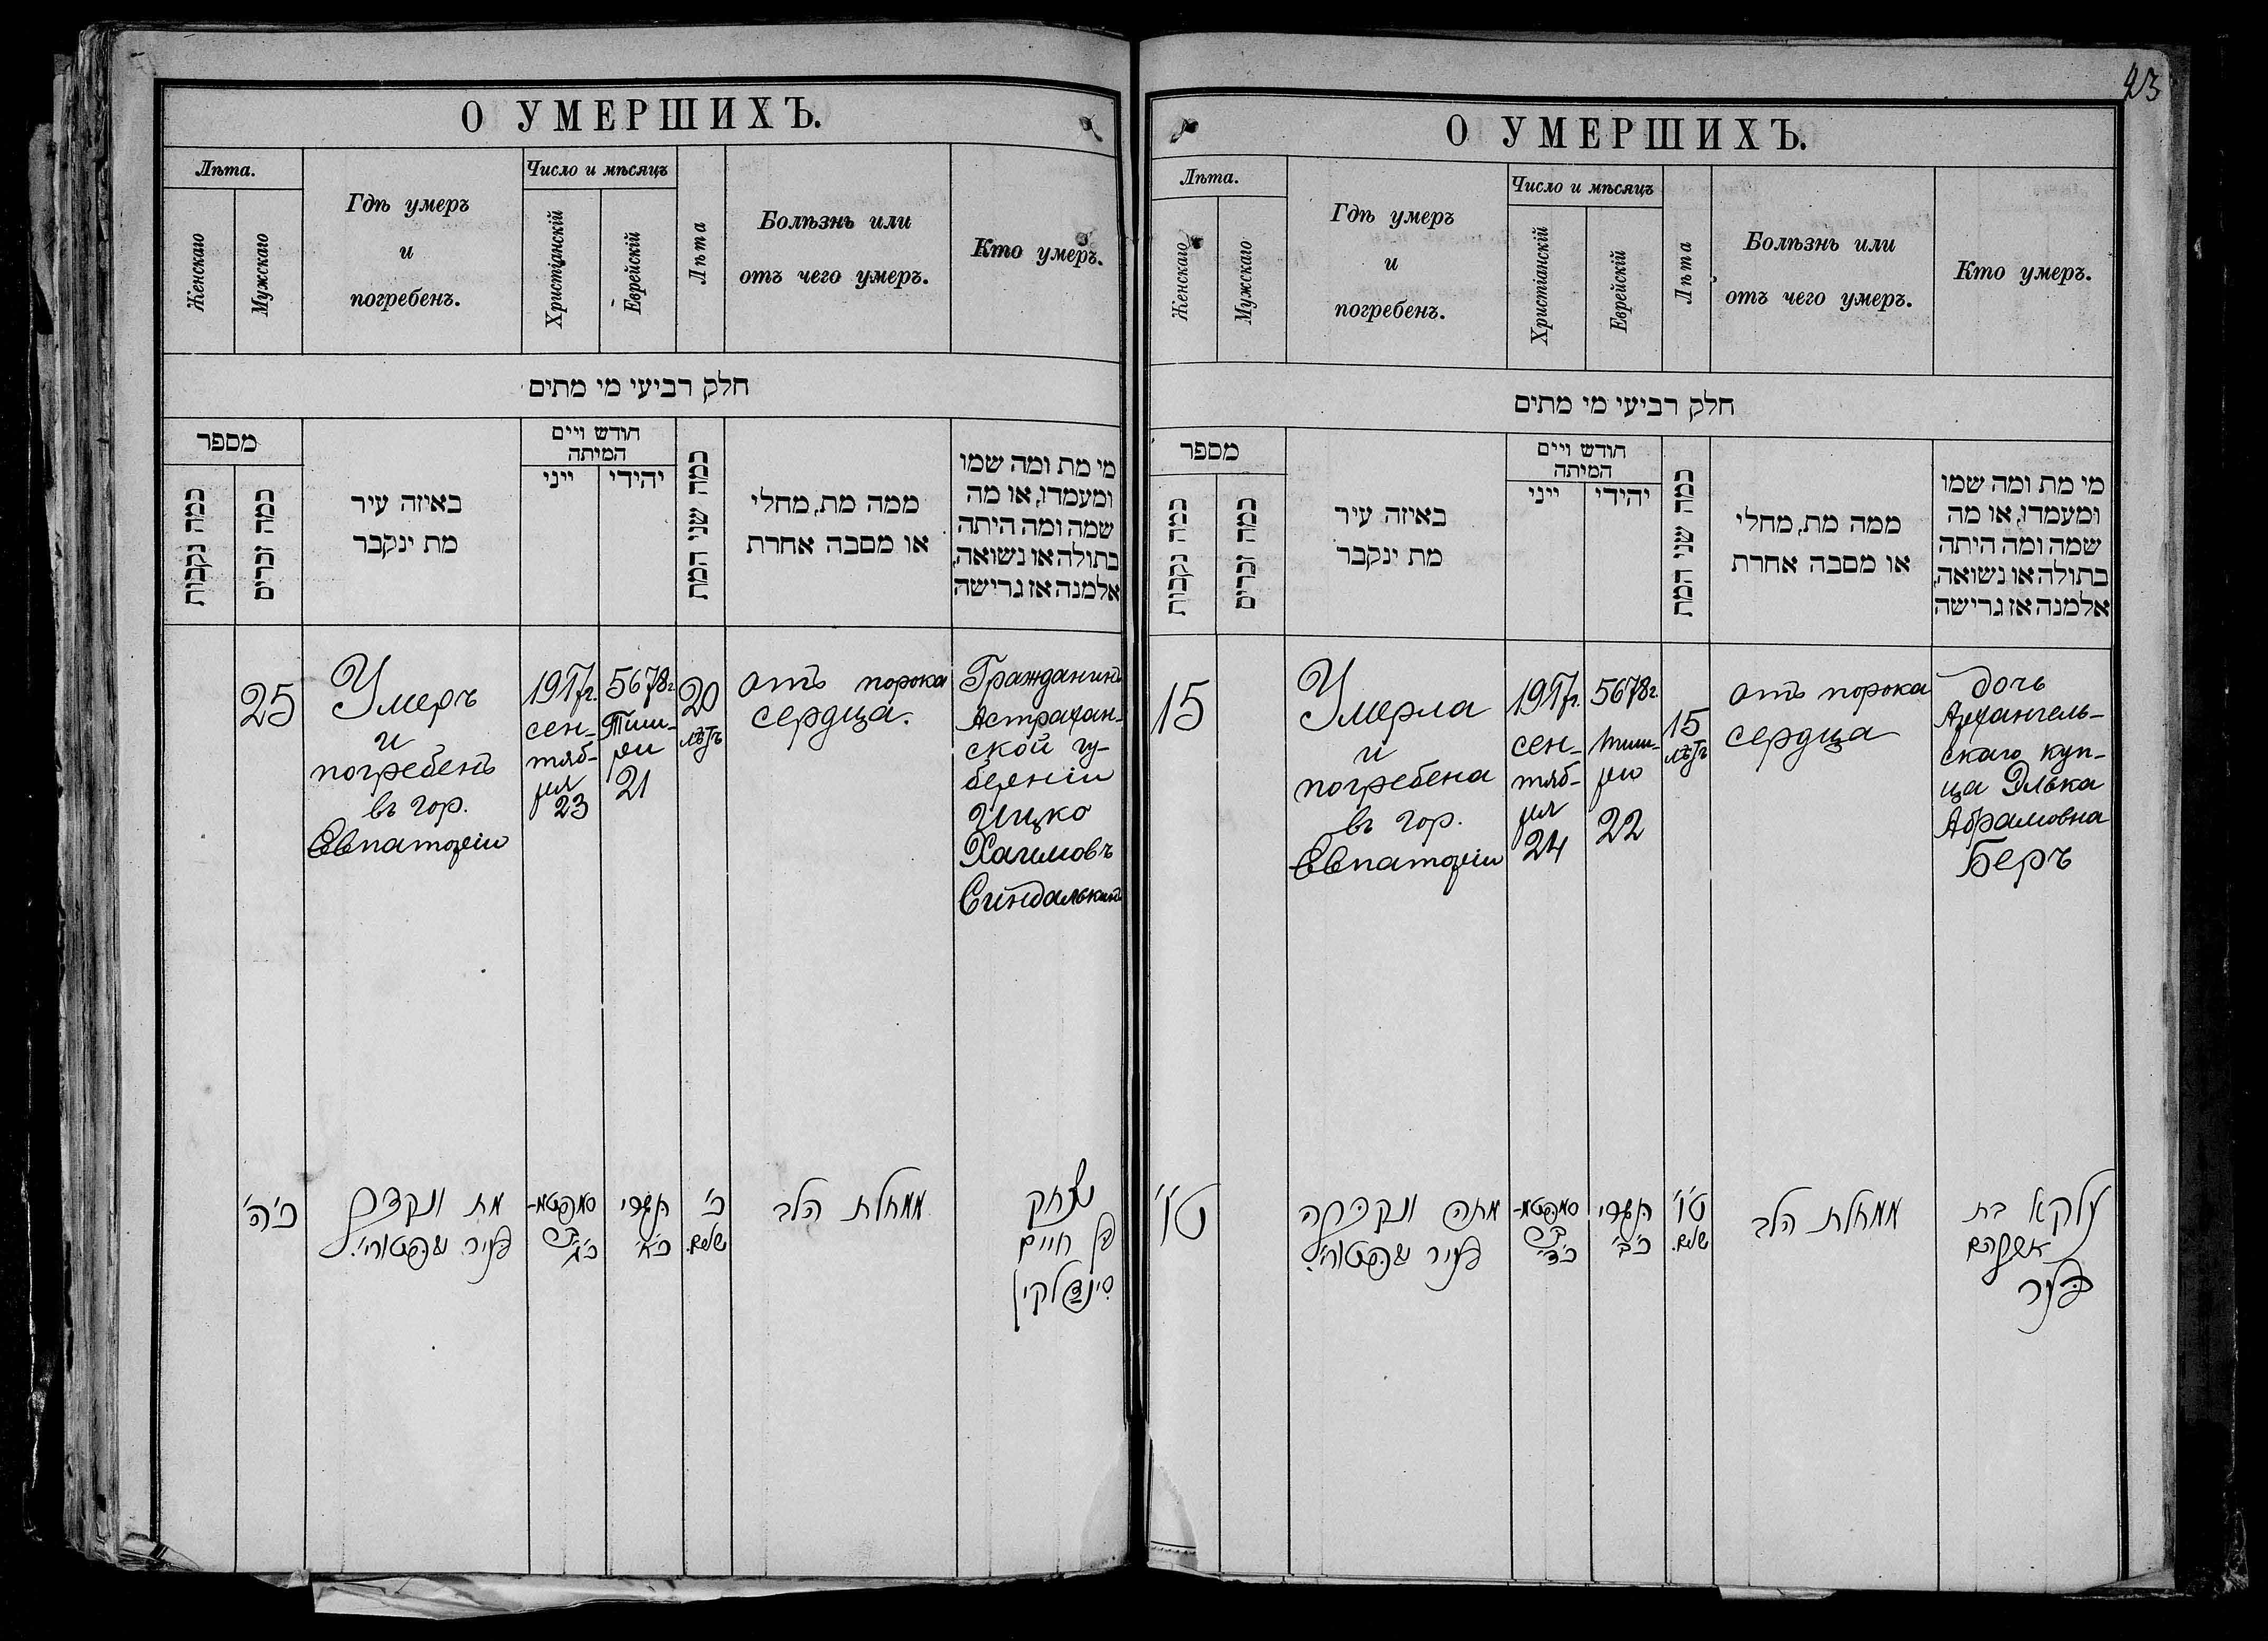 О УМЕРШИХЪ.
Лѣта.
Женскаго
Мужскаго
Гдѣ умеръ
и
погребенъ.
Число и мѣсяцъ
Христіанскій
Еврейскій
Лѣта
Болѣзнь или
отъ чего умеръ.
Кто умеръ.
חלק רביעי מי מתים
מספר
כמה נקבות
כמה זכרים
באיזה עיר
מת ינקבר
חודש ויים
המיתה
ייני
יהידי
כמה שני המת
ממה מת, מחלי
או מסבה אחרת
מי מת ומה שמו
ומעמדו, או מה
שמה ומה היתה
בתולה או נשואה,
אלמנה אז גרישה
25
Умеръ
и
погребенъ
въ гор.
Евпаторіи
1917г.
сен-
тяб-
ря
23
5678г.
Тиш-
ри
21
20
лѣтъ
отъ порока
сердца.
Гражданинъ
Астрахан-
ской гу-
берніи
Ицко
Хаимовъ
Синдалькинъ
כ'ה'
מת ונקבר
בעיר
סעפטמ-
בר
כ'ג'
תשרי
כ'א'
כ'
שנים.
ממחלת הלב
יצחק
בן חיים
סינדלקין
23
О УМЕРШИХЪ.
Лѣта.
Женскаго
Мужскаго
Гдѣ умеръ
и
погребенъ.
Число и мѣсяцъ
Христіанскій
Еврейскій
Лѣта
Болѣзнь или
отъ чего умеръ.
Кто умеръ.
חלק רביעי מי מתים
מספר
כמה נקבות
כמה זכרים
באיזה עיר
מת ינקבר
חודש ויים
המיתה
ייני
יהידי
כמה שני המת
ממה מת, מחלי
או מסבה אחרת
מי מת ומה שמו
ומעמדו, או מה
שמה ומה היתה
בתולה או נשואה,
אלמנה אז גרישה
15
Умерла
и
погребена
въ гор.
Евпаторіи
1917г.
сен-
тяб-
ря
24
5678г.
тиш-
рію
22
15
лѣтъ
отъ порока
сердца
дочь
Архангель-
скаго куп-
ца Элька
Абрамовна
Беръ
ט'ו'
מתה ונקברה
בעיר
סעפטמ-
בר
כ'ד'
תשרי
כ'ב'
ט'ו'
שנים.
ממחלת הלב
עלקא בת
אברהם
בער